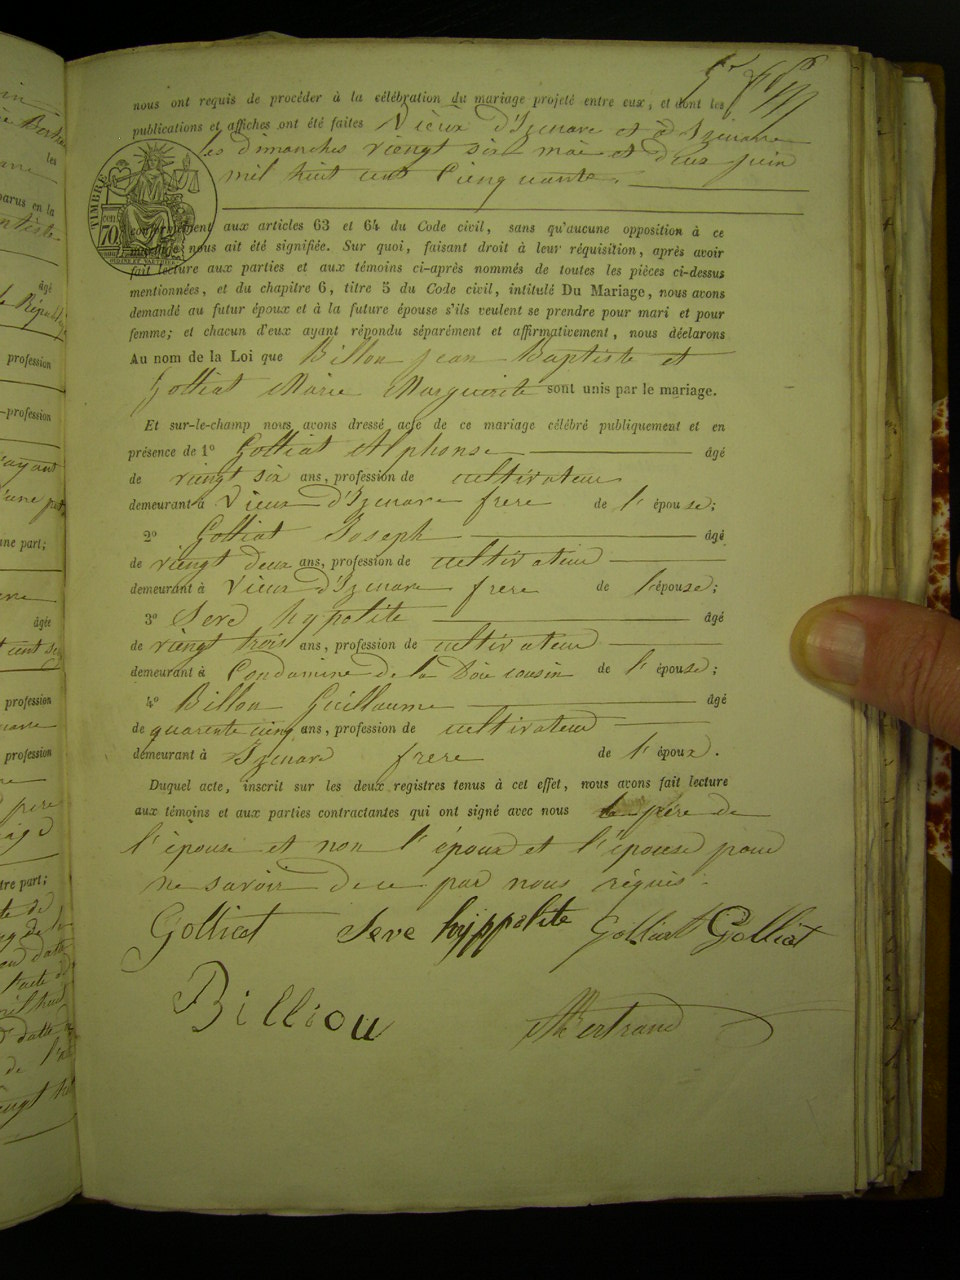 nous ont requis de procéder à la célébration du mariage projeté entre eux, et dont les
publications et affiches ont été faites Vieux d'Izenave et d Izenave
les dimanches viengt six mai et deux juin
mil huit cent Cienquante.
TIMBRE
70
conformément aux articles 63 et 64 du Code civil, sans qu'aucune opposition à ce
mariage nous ait été signifiée. Sur quoi, faisant droit à leur réquisition, après avoir
fait lecture aux parties et aux témoins ci-après nommés de toutes les pièces ci-dessus
mentionnées, et du chapitre 6, titre 5 du Code civil, intitulé Du Mariage, nous avons
demandé au futur époux et à la future épouse s'ils veulent se prendre pour mari et pour
femme; et chacun d'eux ayant répondu séparément et affirmativement, nous déclarons
Au nom de la Loi que Billon jean Baptiste et
Golliat Marie Marguerite sont unis par le mariage.
Et sur-le-champ nous avons dressé acte de ce mariage célébré publiquement et en
présence de 1º Golliat Alphonse âgé
de viengt six ans, profession de cultivateur
demeurant à Vieux d'Izenave frere de l'épouse;
2º Golliat Joseph âgé
de viengt deux ans, profession de cultivateur
demeurant à Vieux d'Izenave frere de l'épouse;
3º Seve hypolite âgé
de viengt trois ans, profession de cultivateur
demeurant à Condamine de la Doie cousin de l'épouse;
4º Billon Guillaume âgé
de quarente cienq ans, profession de cultivateur
demeurant à Izenave frere de l'époux.
Duquel acte, inscrit sur les deux registres tenus à cet effet, nous avons fait lecture
aux témoins et aux parties contractantes qui ont signé avec nous le père de
l'épouse et non l'époux et l'épouse pour
ne savoir de ce par nous réquis.
Golliat Seve hyppolite Golliat Golliat
Billiou Bertrand